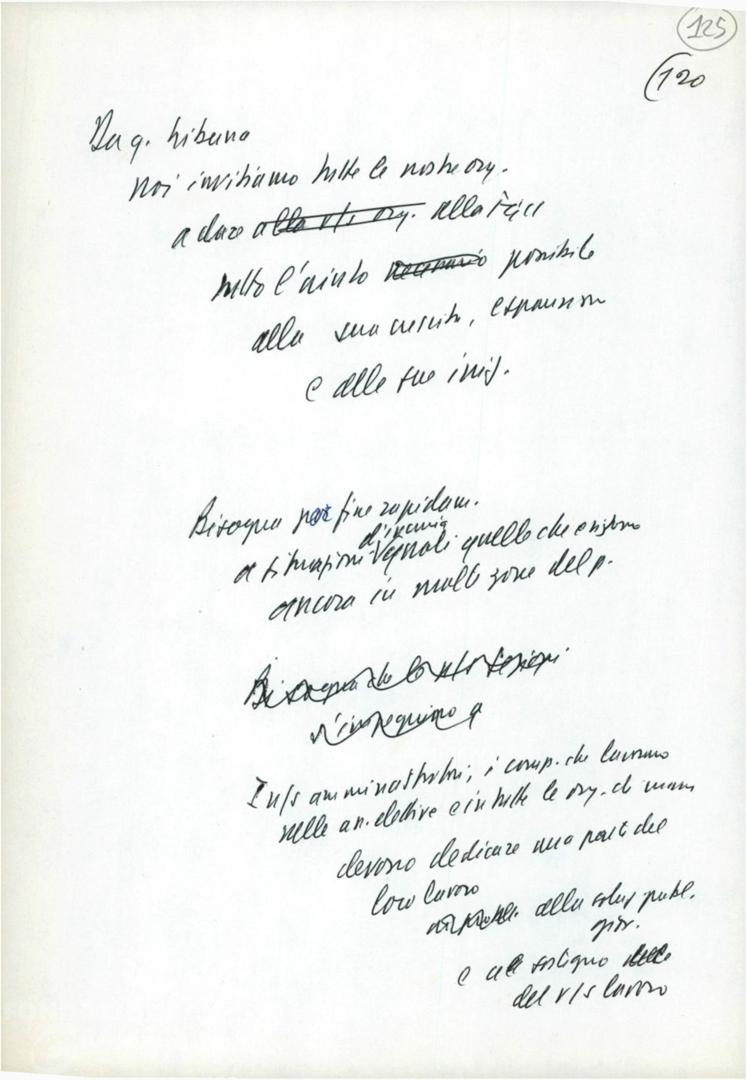 125
(120
Da q. tribuna
noi invitiamo tutte le nostre org.
a dare alla v/s org. alla FGCI
tutto l'aiuto necessario possibile
alla sua crescita, espansione
e alle sue iniz.
Bisogna por fine rapidam.
d'inerzia
a situazioni quelle che esistono
ancora in molte zone del p.
Bisogna che le n/s sezioni
s'impegnino a
I n/s amministratori, i comp. che lavorano
nelle as. elettive e in tutte le org. di massa
devono dedicare una parte del
loro lavoro
alla soluz. probl.
giov.
e al sostegno delle
del v/s lavoro